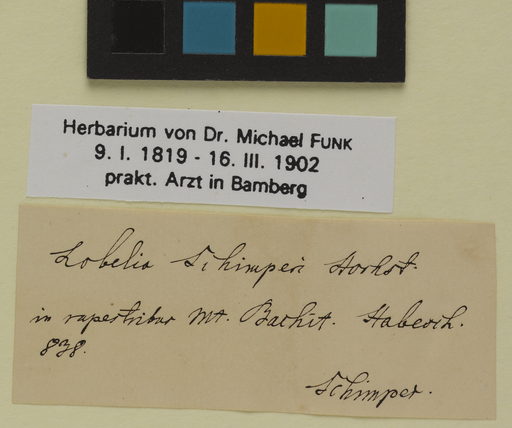 Herbarium von Dr. Michael FUNK
9. I. 1819 - 16. III. 1902
prakt. Arzt in Bamberg
Lobelia Schimperi Hochst.
in rupestribus Mt. Bachit. Habesch.
838.
Schimper.